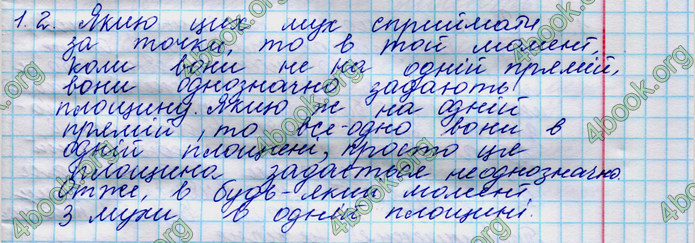 1.2. Якщо цих мух сприймати
за точки, то в той момент,
коли вони не на одній прямій,
вони однозначно задають
площину. Якщо ж на одній
прямій, то все-одно вони в
одній площині, просто ця
площина задається неоднозначно.
Отже, в будь-який момент
3 мухи в одній площині.
4book.org
4book.org
4book.org
4book.org
4book.org
4book.org